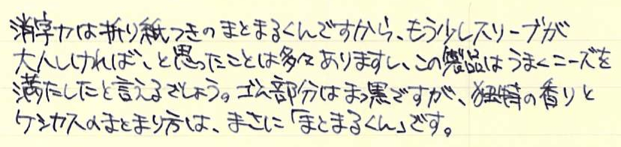 消字力は折り紙つきのまとまるくんですから、もう少しスリーブが
大人しければ、と思ったことは多々ありますし、この製品はうまくニーズを
満たしたと言えるでしょう。ゴム部分はまっ黒ですが、独特の香りと
ケシカスのまとまり方は、まさに「まとまるくん」です。